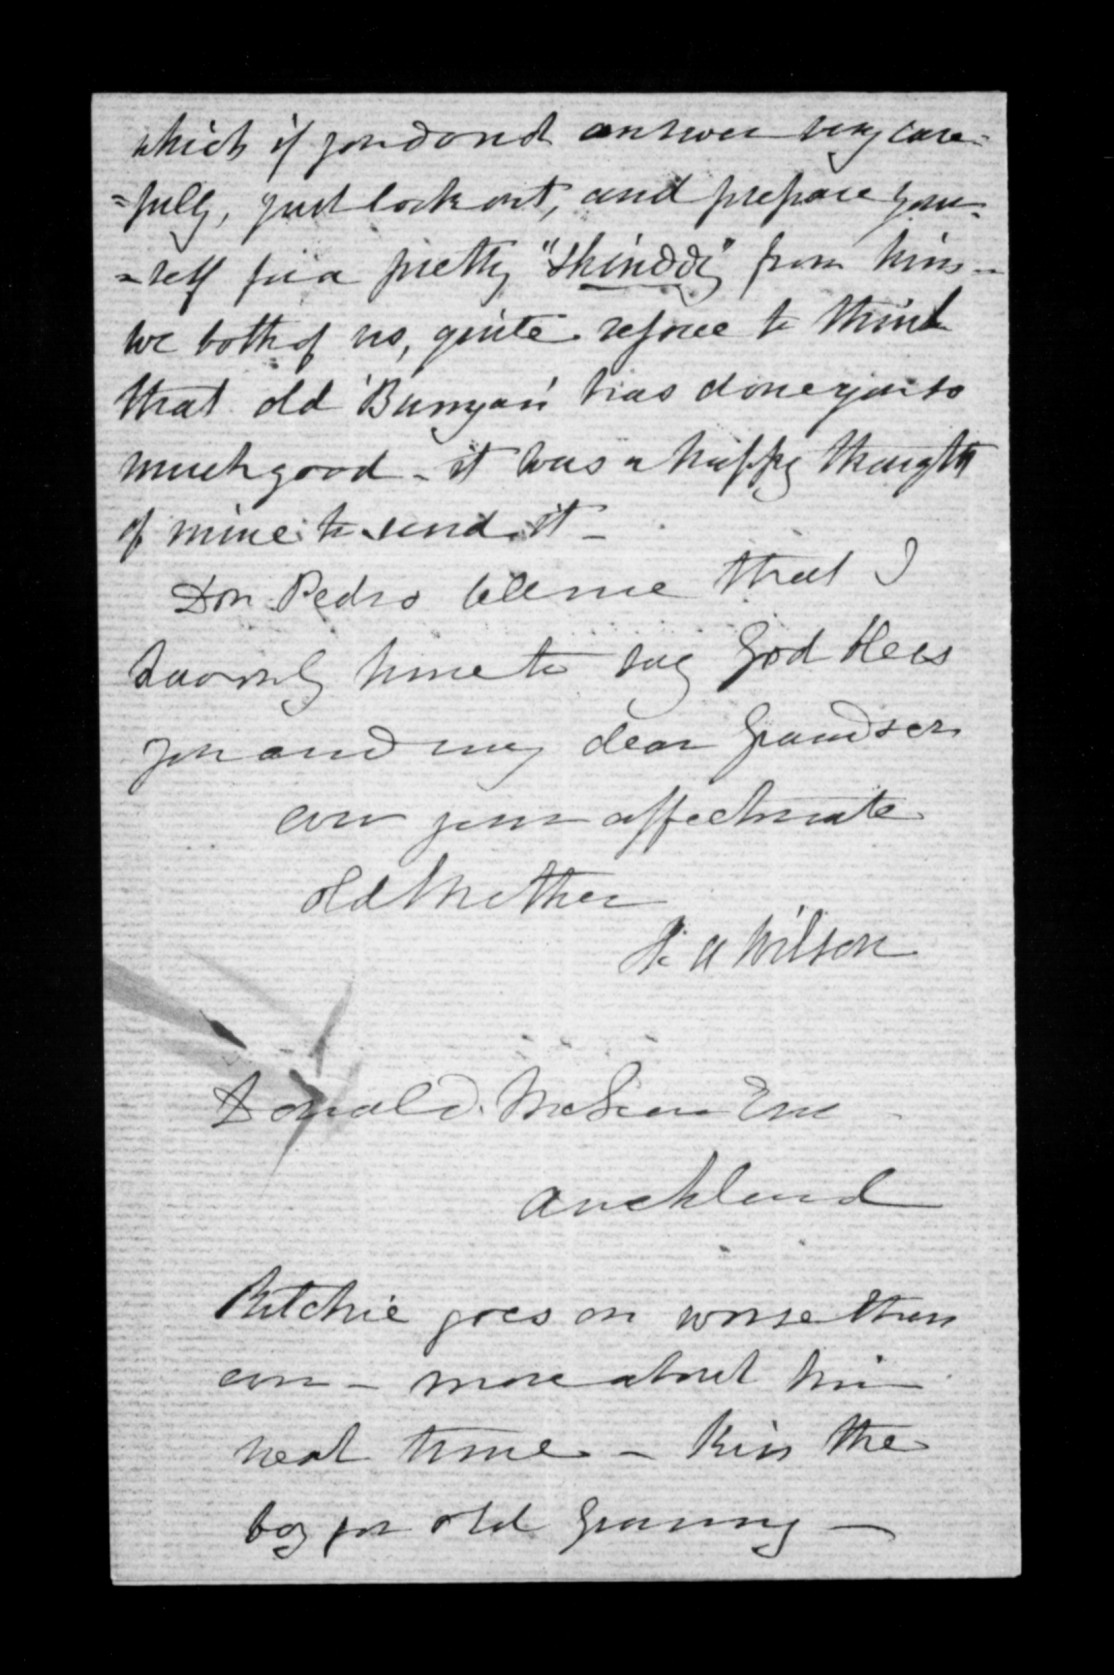 which if you do not answer very care=
=fully, just look out, and prepare your=
=self for a pretty "shinddy" from him -
we both of us, quite rejoice to think
that old 'Bunyan' has done you so
much good - it was a happy thought
of mine to send it -
Don Pedro tells me that I
have only time to say God bless
you and my dear Grandson
ever your affectionate
old Mother
A Wilson
Donald McLean Esq
Auckland
Ritchie goes on worse than
ever - more about him
next time - Kiss the
boy for old Granny -